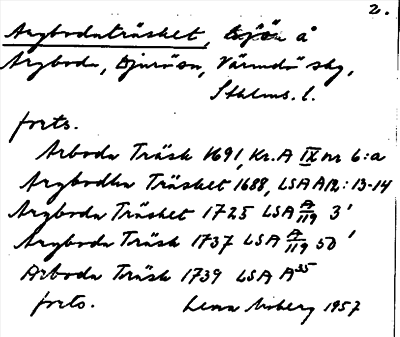 2.
Arybodaträsket, å
Aryboda, Djurön, Värmdö skg,
Sthlms. l.
forts.
Arboda Träsk 1691, Kr.A IX nr 6:a
Arybodha Träsket 1688, LSA A12:13-14
Aryboda Träsket 1725 LSA A/119 3¹
Aryboda Träsk 1737 LSA A/119 50¹
Arboda Träsk 1739 LSA A³⁵
forts. Lena Moberg 1957